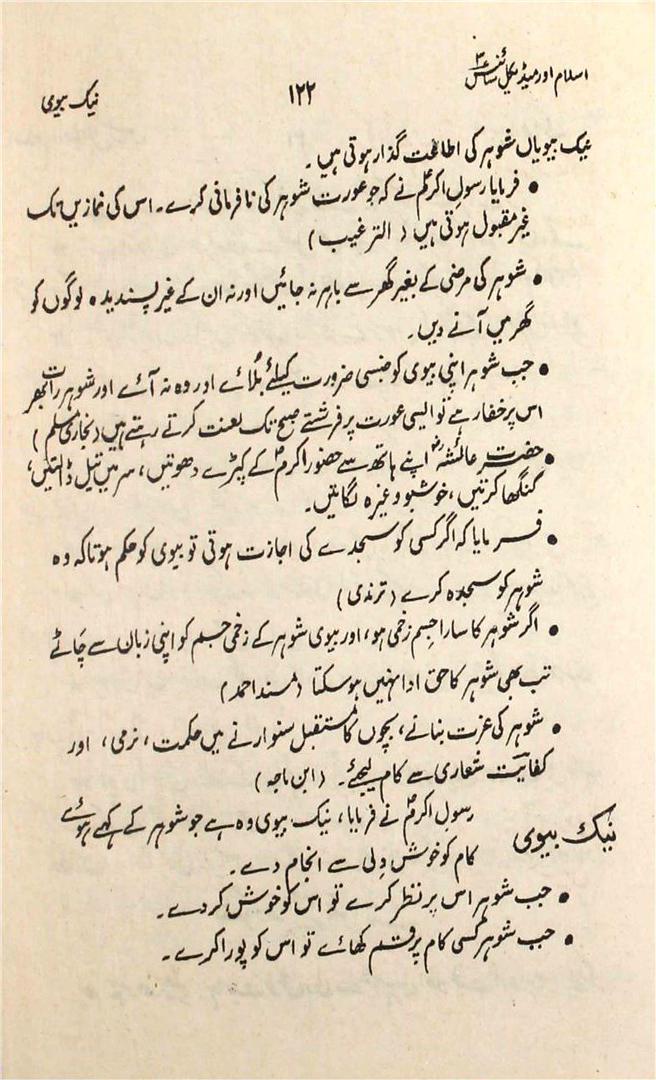 اسلام اور میڈیکل سائنس ۳
۱۲۲
نیک بیوی
نیک بیویاں شوہر کی اطاعت گذار ہوتی ہیں۔
• فرمایا رسول اکرمؐ نے کہ جو عورت شوہر کی نافرمانی کرے۔ اس کی نمازیں تک
غیر مقبول ہوتی ہیں (الترغیب)
• شوہر کی مرضی کے بغیر گھر سے باہر نہ جائیں اور نہ ان کے غیر پسندیدہ لوگوں کو
گھر میں آنے دیں۔
• جب شوہر اپنی بیوی کو جنسی ضرورت کیلئے بلائے اور وہ نہ آئے اور شوہر رات بھر
اس پر خفا رہے تو ایسی عورت پر فرشتے صبح تک لعنت کرتے رہتے ہیں (بخاری مسلم)
• حضرت عائشہؓ اپنے ہاتھ سے حضور اکرمؐ کے کپڑے دھوتیں، سر میں تیل ڈالتیں،
کنگھا کرتیں، خوشبو وغیرہ لگاتیں۔
• فرمایا کہ اگر کسی کو سجدے کی اجازت ہوتی تو بیوی کو حکم ہوتا کہ وہ
شوہر کو سجدہ کرے (ترمذی)
• اگر شوہر کا سارا جسم زخمی ہو، اور بیوی شوہر کے زخمی جسم کو اپنی زبان سے چاٹے
تب بھی شوہر کا حق ادا نہیں ہو سکتا (مسند احمد)
• شوہر کی عزت بنانے، بچوں کا مستقبل سنوارنے میں حکمت، نرمی، اور
کفایت شعاری سے کام لیجئے۔ (ابن ماجہ)
نیک بیوی رسول اکرمؐ نے فرمایا، نیک بیوی وہ ہے جو شوہر کے کہے ہوئے
کام کو خوش دلی سے انجام دے۔
• جب شوہر اس پر نظر کرے تو اس کو خوش کر دے۔
• جب شوہر کسی کام پر قسم کھائے تو اس کو پورا کرے۔